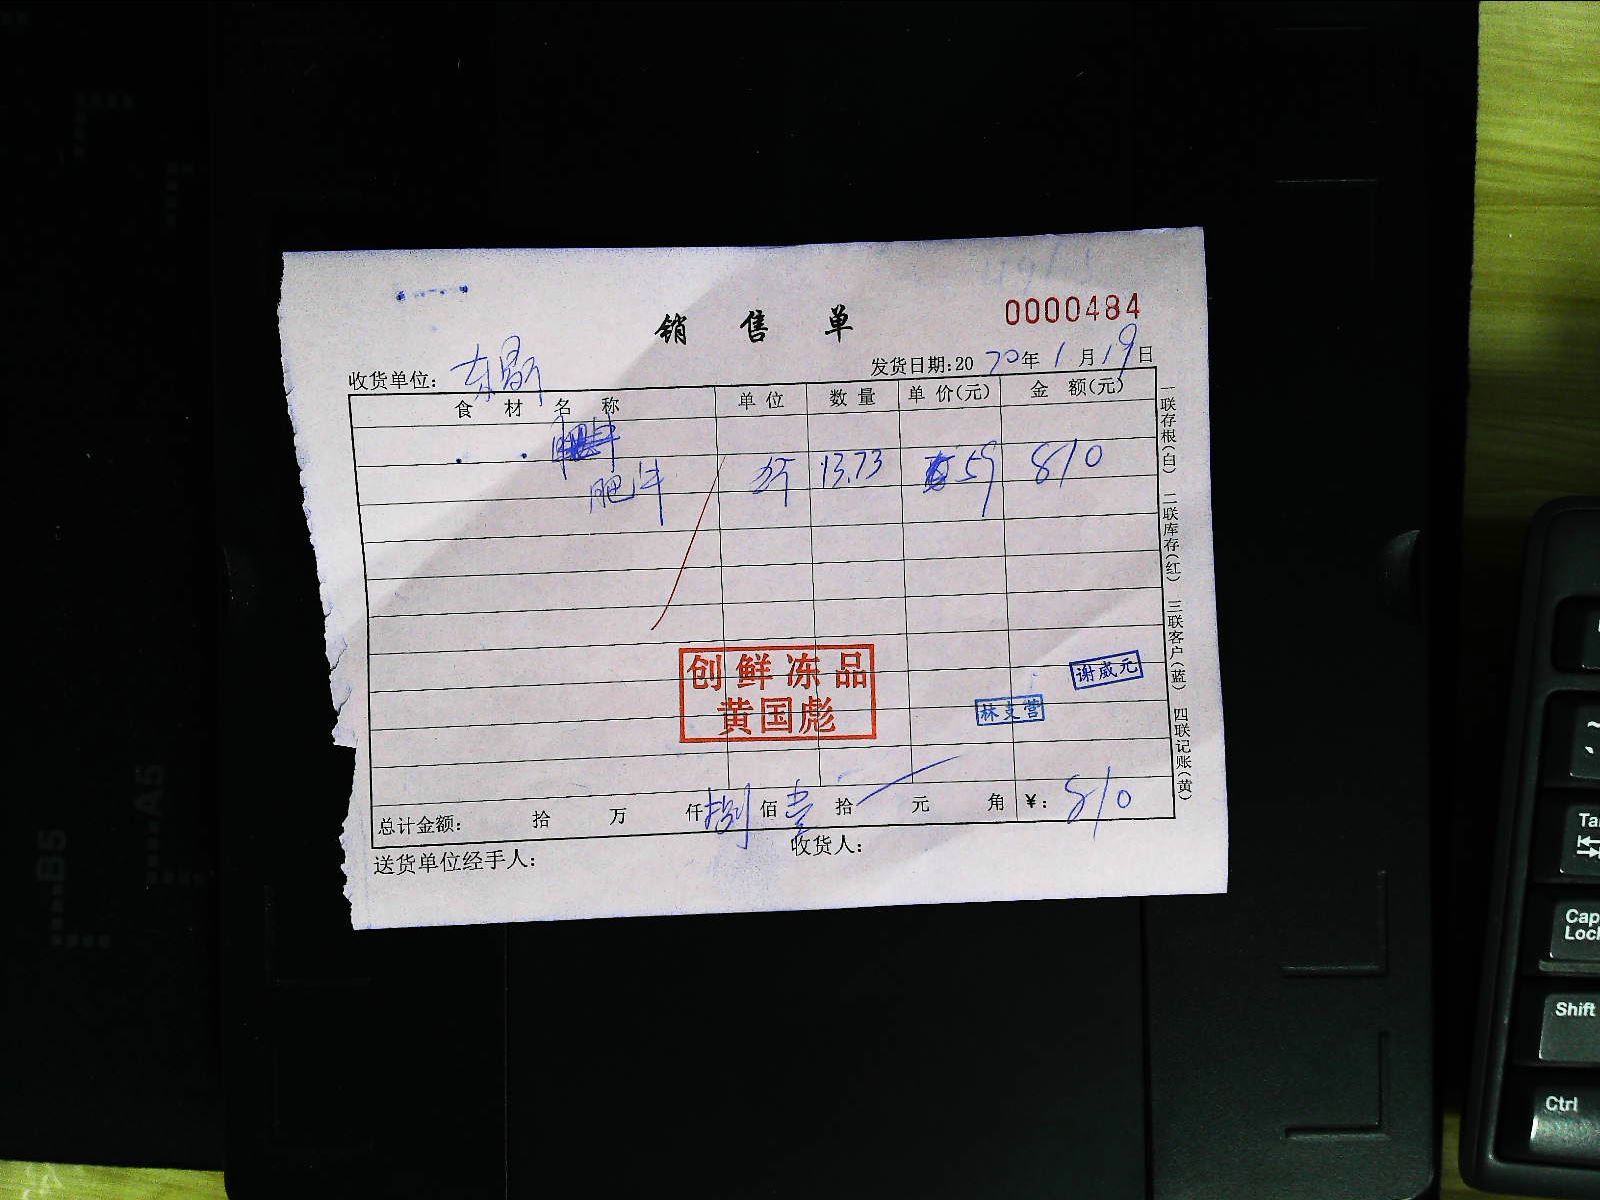 0000484
销 售 单
收货单位: 发货日期:2020年1月19日
食 材 名 称 单 位 数 量 单 价(元) 金 额(元)
肥牛 斤 13.73 59 810
创鲜冻品
黄国彪
谢威元
林支营
总计金额: 拾 万 仟捌佰壹拾 元 角 ¥: 810
送货单位经手人: 收货人:
一联存根(白) 二联库存(红) 三联客户(蓝) 四联记账(黄)
A5
B5
Tab
Caps
Lock
Shift
Ctrl